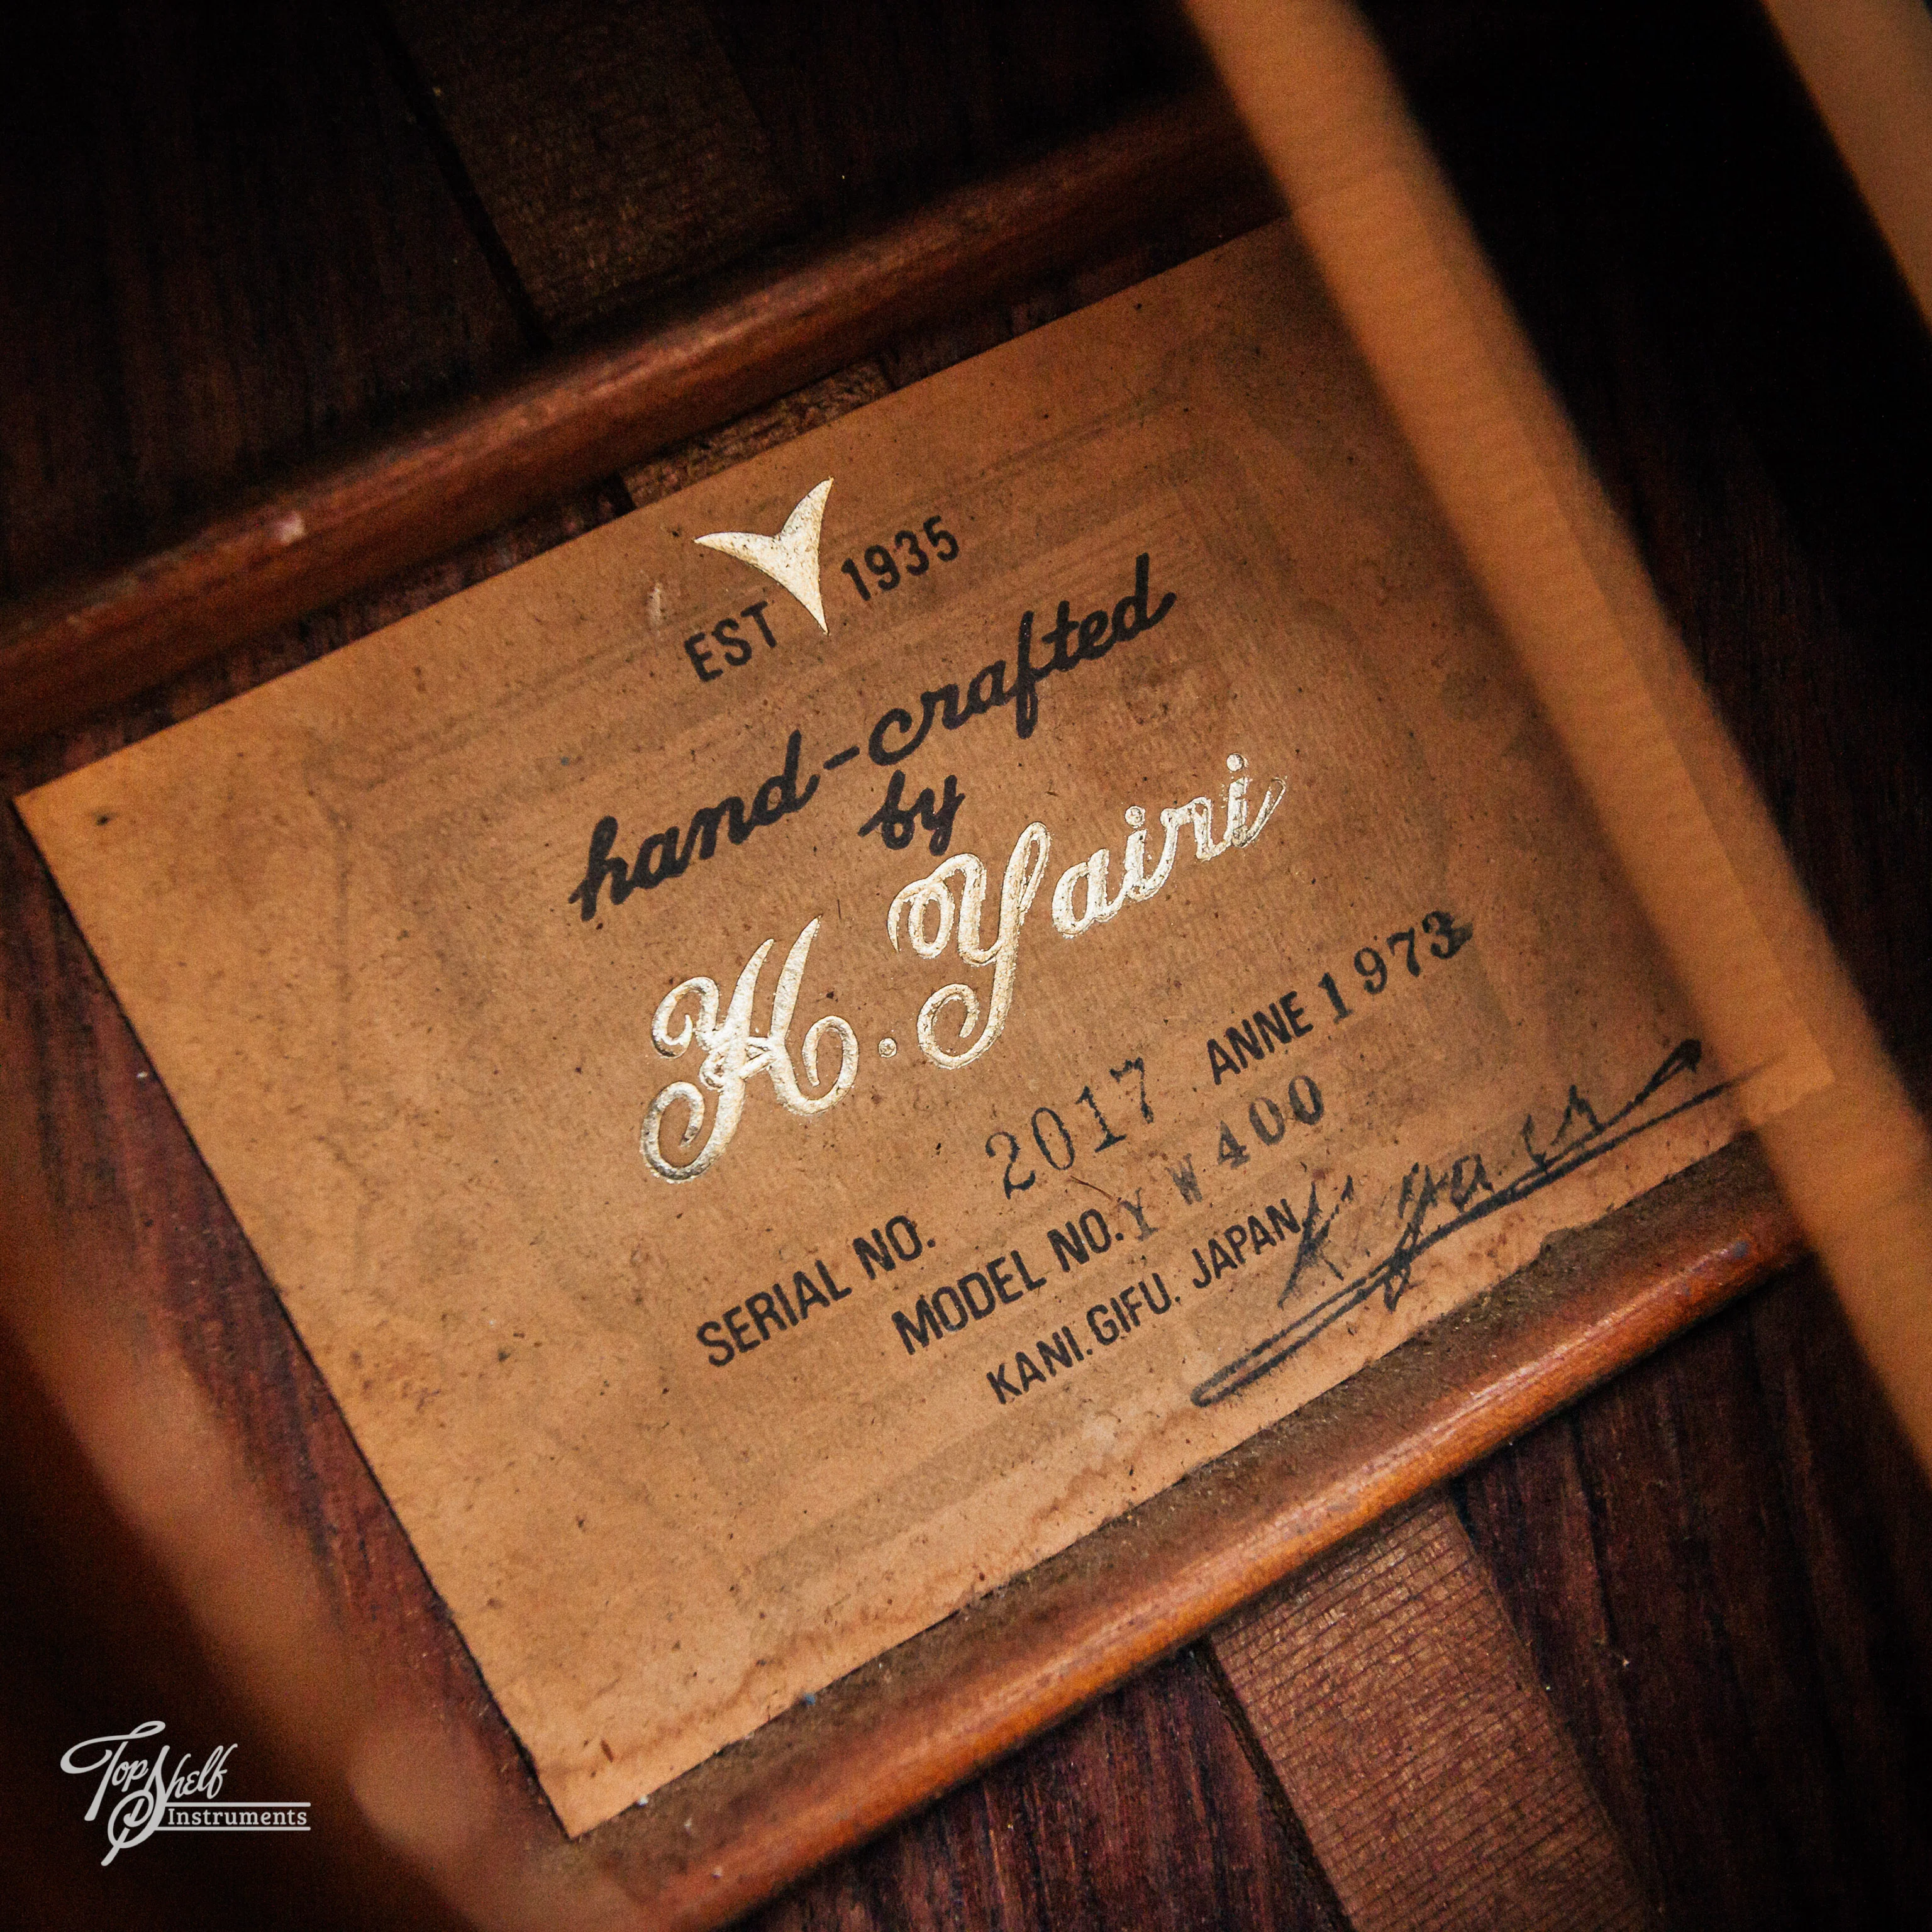 EST 1935
hand-crafted
by
K. Yairi
SERIAL NO. 2017 ANNE 1973
MODEL NO. YW400
KANI. GIFU. JAPAN
K. Yairi
Top Shelf
Instruments